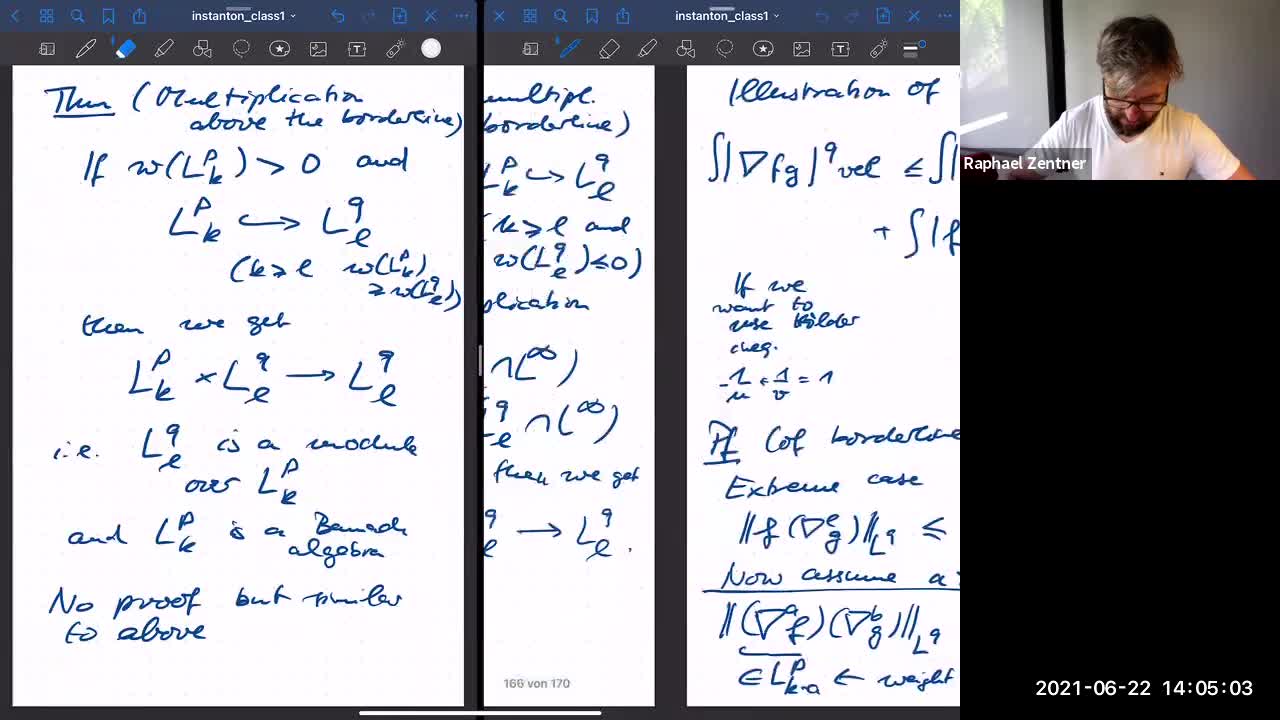 instanton_class1
Thm (Multiplication
above the borderline)
If w(L^p_k) > 0 and
L^p_k ↪ L^q_l
(k ≥ l w(L^p_k)
≥ w(L^q_l))
then we get
L^p_k × L^q_l → L^q_l
i.e. L^q_l is a module
over L^p_k
and L^p_k is a Banach
algebra
No proof but similar
to above
instanton_class1
multipl.
borderline)
L^p_k ↪ L^q_l
(k ≥ l and
w(L^q_l) ≤ 0)
plication
∩ L^∞)
L^q_l ∩ L^∞)
then we get
^q_l → L^q_l .
166 von 170
Illustration of
∫|∇fg|^q vol ≤ ∫|
+ ∫|f
If we
want to
use Hölder
ineq.
1/u + 1/v = 1
Pf (of borderline
Extreme case
||f(∇^l g)||_{L^q} ≤
Now assume a
||(∇^a f)(∇^b g)||_{L^q}
∈ L^p_{k-a} ← weight
Raphael Zentner
2021-06-22 14:05:03